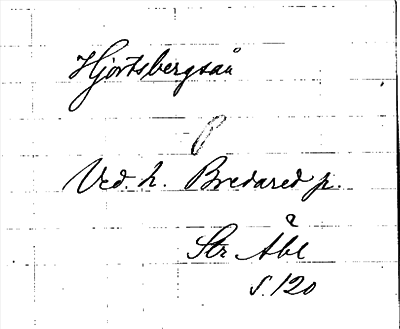 Hjortsbergsån
Ved. h. Bredared p.
Str Åbl
s. 120